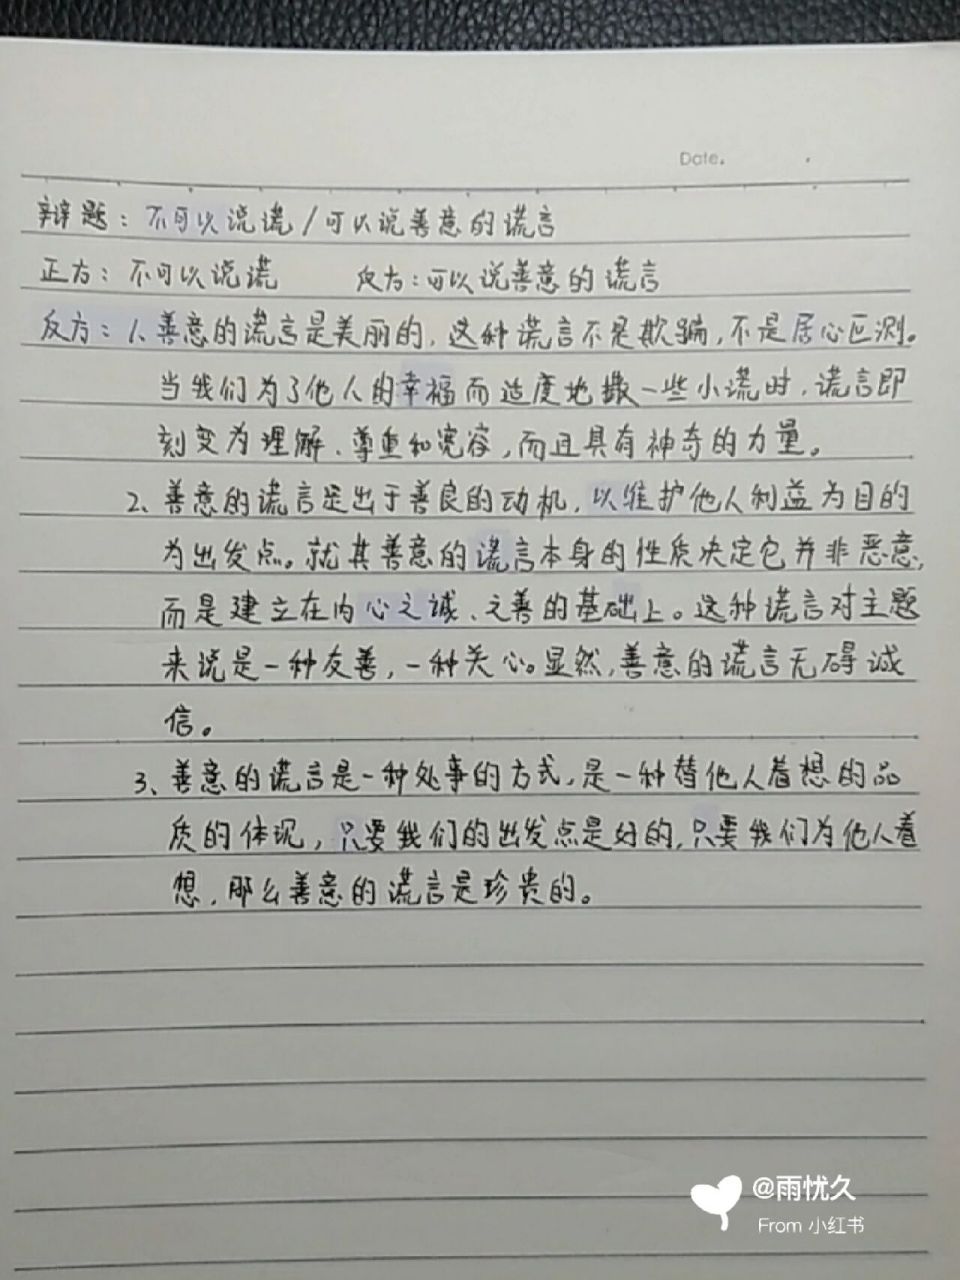 Date.
辩题：不可以说谎/可以说善意的谎言
正方：不可以说谎 反方：可以说善意的谎言
反方：1、善意的谎言是美丽的，这种谎言不是欺骗，不是居心叵测。
当我们为了他人的幸福而适度地撒一些小谎时，谎言即
刻变为理解、尊重和宽容，而且具有神奇的力量。
2、善意的谎言是出于善良的动机，以维护他人利益为目的
为出发点。就其善意的谎言本身的性质决定它并非恶意，
而是建立在内心之诚、之善的基础上。这种谎言对主题
来说是一种友善，一种关心。显然，善意的谎言无碍诚
信。
3、善意的谎言是一种处事的方式，是一种替他人着想的品
质的体现，只要我们的出发点是好的，只要我们为他人着
想，那么善意的谎言是珍贵的。
@雨忧久
From 小红书